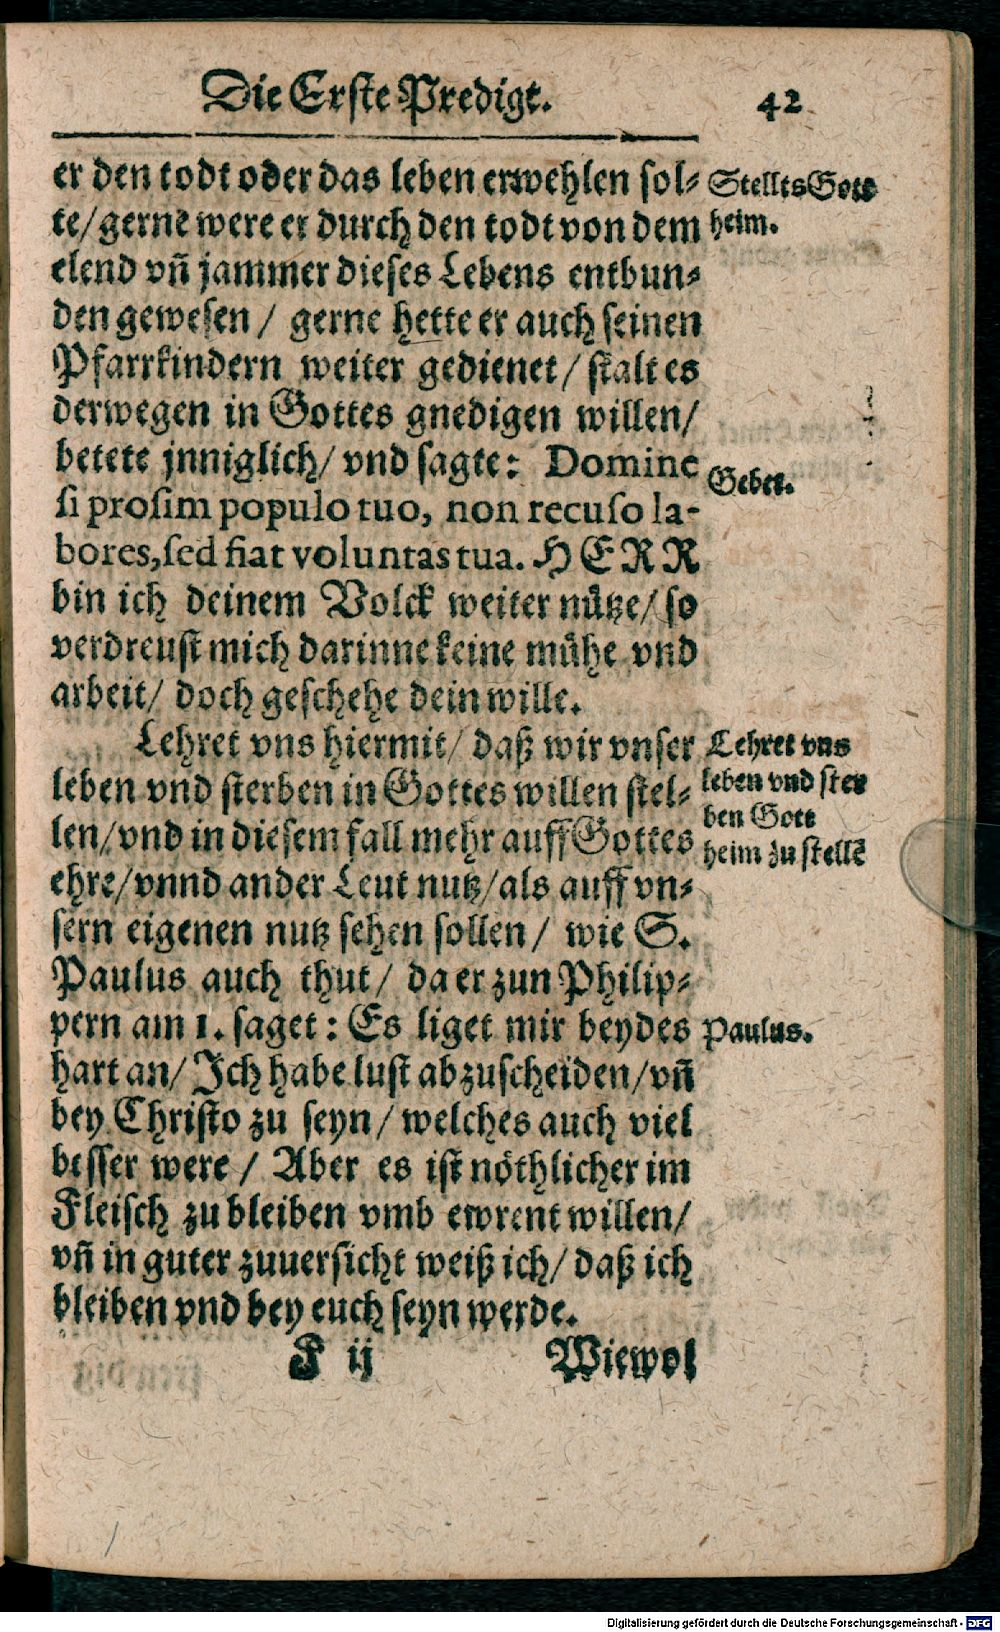 Die Erste Predigt. 42
er den todt oder das leben erwehlen sol-
te/gerne were er durch den todt von dem
elend vn̄ jammer dieses Lebens entbun-
den gewesen / gerne hette er auch seinen
Pfarrkindern weiter gedienet / stalt es
derwegen in Gottes gnedigen willen/
betete jnniglich/ vnd sagte: Domine
si prosim populo tuo, non recuso la-
bores, sed fiat voluntas tua. HERR
bin ich deinem Volck weiter nůtze/ so
verdreust mich darinne keine můhe vnd
arbeit/ doch geschehe dein wille.
Lehret vns hiermit/ daß wir vnser
leben vnd sterben in Gottes willen stel-
len/vnd in diesem fall mehr auff Gottes
ehre/vnnd ander Leut nutz/als auff vn-
sern eigenen nutz sehen sollen / wie S.
Paulus auch thut / da er zun Philip-
pern am 1. saget: Es liget mir beydes
hart an/ Ich habe lust abzuscheiden/vn̄
bey Christo zu seyn / welches auch viel
besser were / Aber es ist nöthlicher im
Fleisch zu bleiben vmb ewrent willen/
vn̄ in guter zuuersicht weiß ich/ daß ich
bleiben vnd bey euch seyn werde.
F ij Wiewol
Stellts Gott
heim.
Gebet.
Lehret vns
leben vnd ster
ben Gott
heim zu stellē
Paulus.
Digitalisierung gefördert durch die Deutsche Forschungsgemeinschaft - DFG